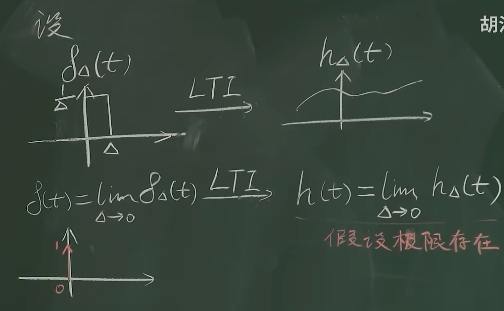 设
δ_Δ(t) LTI h_Δ(t)
1/Δ
Δ
δ(t)=lim_{Δ→0} δ_Δ(t) LTI h(t)=lim_{Δ→0} h_Δ(t)
假设极限存在
1
0
胡